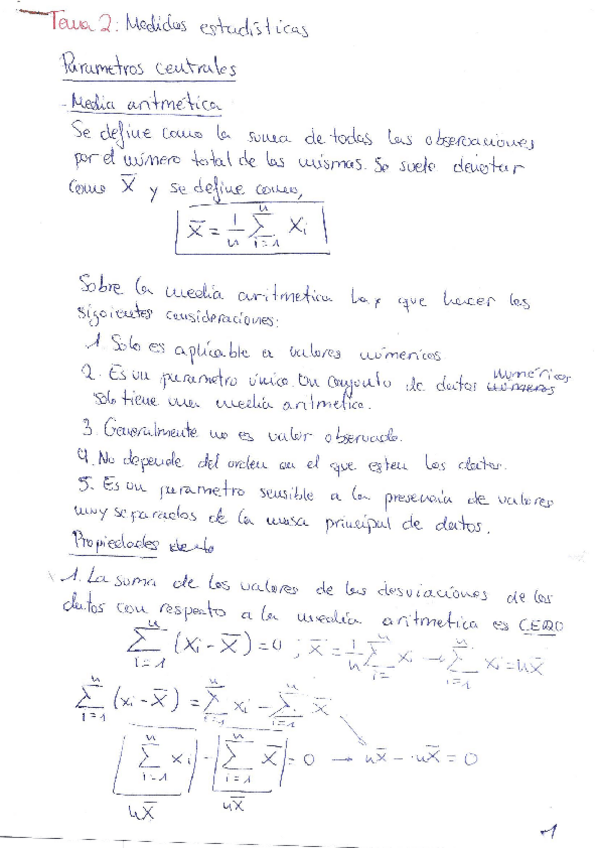 Tema 2: Medidas estadísticas
Parametros centrales
- Media aritmética
Se define como la suma de todas las observaciones
por el número total de las mismas. Se suele denotar
como X̄ y se define como,
X̄ = 1/n ∑_{i=1}^{n} Xi
Sobre la media aritmetica hay que hacer las
siguientes consideraciones:
1. Solo es aplicable a valores númericos
2. Es un parametro único. Un conjunto de datos numéricos
solo tiene una media aritmetica.
3. Generalmente no es valor observado.
4. No depende del orden en el que esten los datos.
5. Es un parametro sensible a la presencia de valores
muy separados de la masa principal de datos.
Propiedades
1. La suma de los valores de las desviaciones de los
datos con respecto a la media aritmetica es CERO
∑_{i=1}^{n} (xi - X̄) = 0 ; X̄ = 1/n ∑_{i=}^{n} xi → ∑_{i=1}^{n} xi = nX̄
∑_{i=1}^{n} (xi - X̄) = ∑_{i=1}^{n} xi - ∑_{i=1}^{n} X̄
∑_{i=1}^{n} xi - ∑_{i=1}^{n} X̄ = 0 → nX̄ - nX̄ = 0
nX̄ nX̄
1